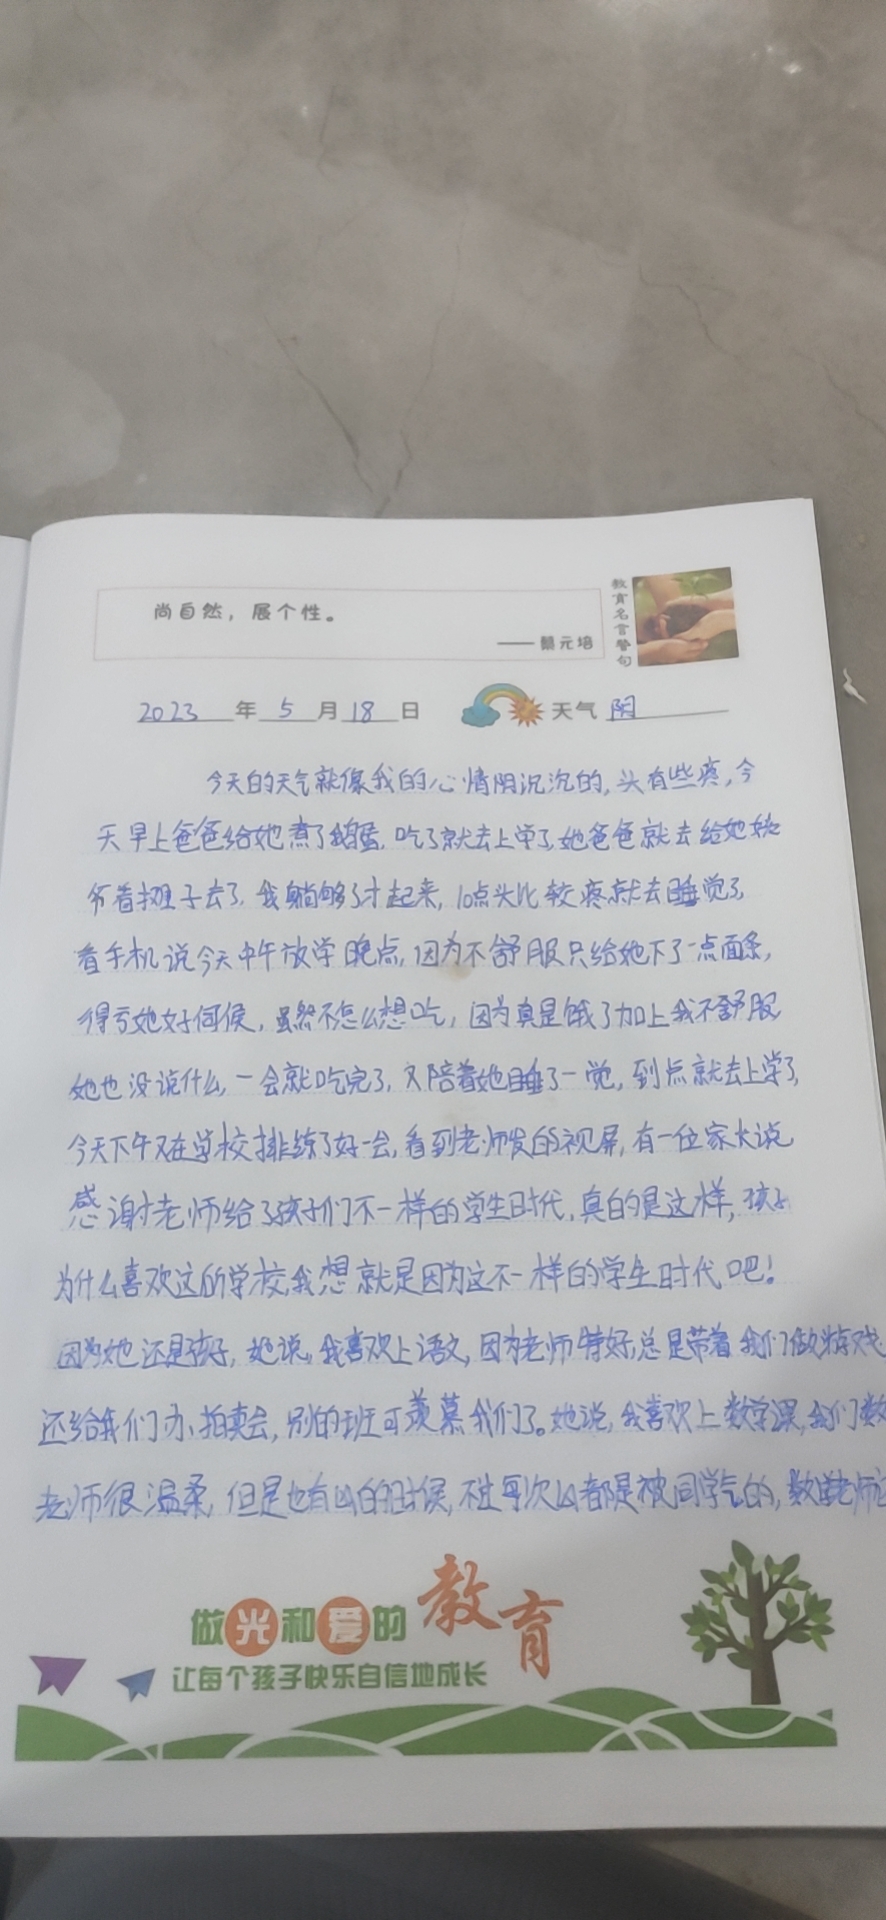 尚自然，展个性。
——蔡元培
教育名言警句
2023年5月18日 天气 阴
今天的天气就像我的心情阴沉沉的,头有些疼,今
天早上爸爸给她煮了鹅蛋,吃了就去上学了,她爸爸就去给她
爷看摊子去了,我躺够了才起来,10点头比较疼就去睡觉了
看手机说今天中午放学晚点,因为不舒服只给她下了一点面条,
得亏她好伺候,虽然不怎么想吃,因为真是饿了加上我不舒服
她也没说什么,一会就吃完了,又陪着她睡了一觉,到点就去上学了,
今天下午又在学校排练了好一会,看到老师发的视屏,有一位家长说
感谢老师给了孩子们不一样的学生时代,真的是这样,孩子
为什么喜欢这所学校,我想就是因为这不一样的学生时代吧!
因为她还是孩子,她说,我喜欢上语文,因为老师特好,总是带着我们做游戏
还给我们办拍卖会,别的班可羡慕我们了。她说,我喜欢上数学课,我们数
老师很温柔,但是也有凶的时候,不过每次凶都是被同学气的,数学老师
做光和爱的教育
让每个孩子快乐自信地成长